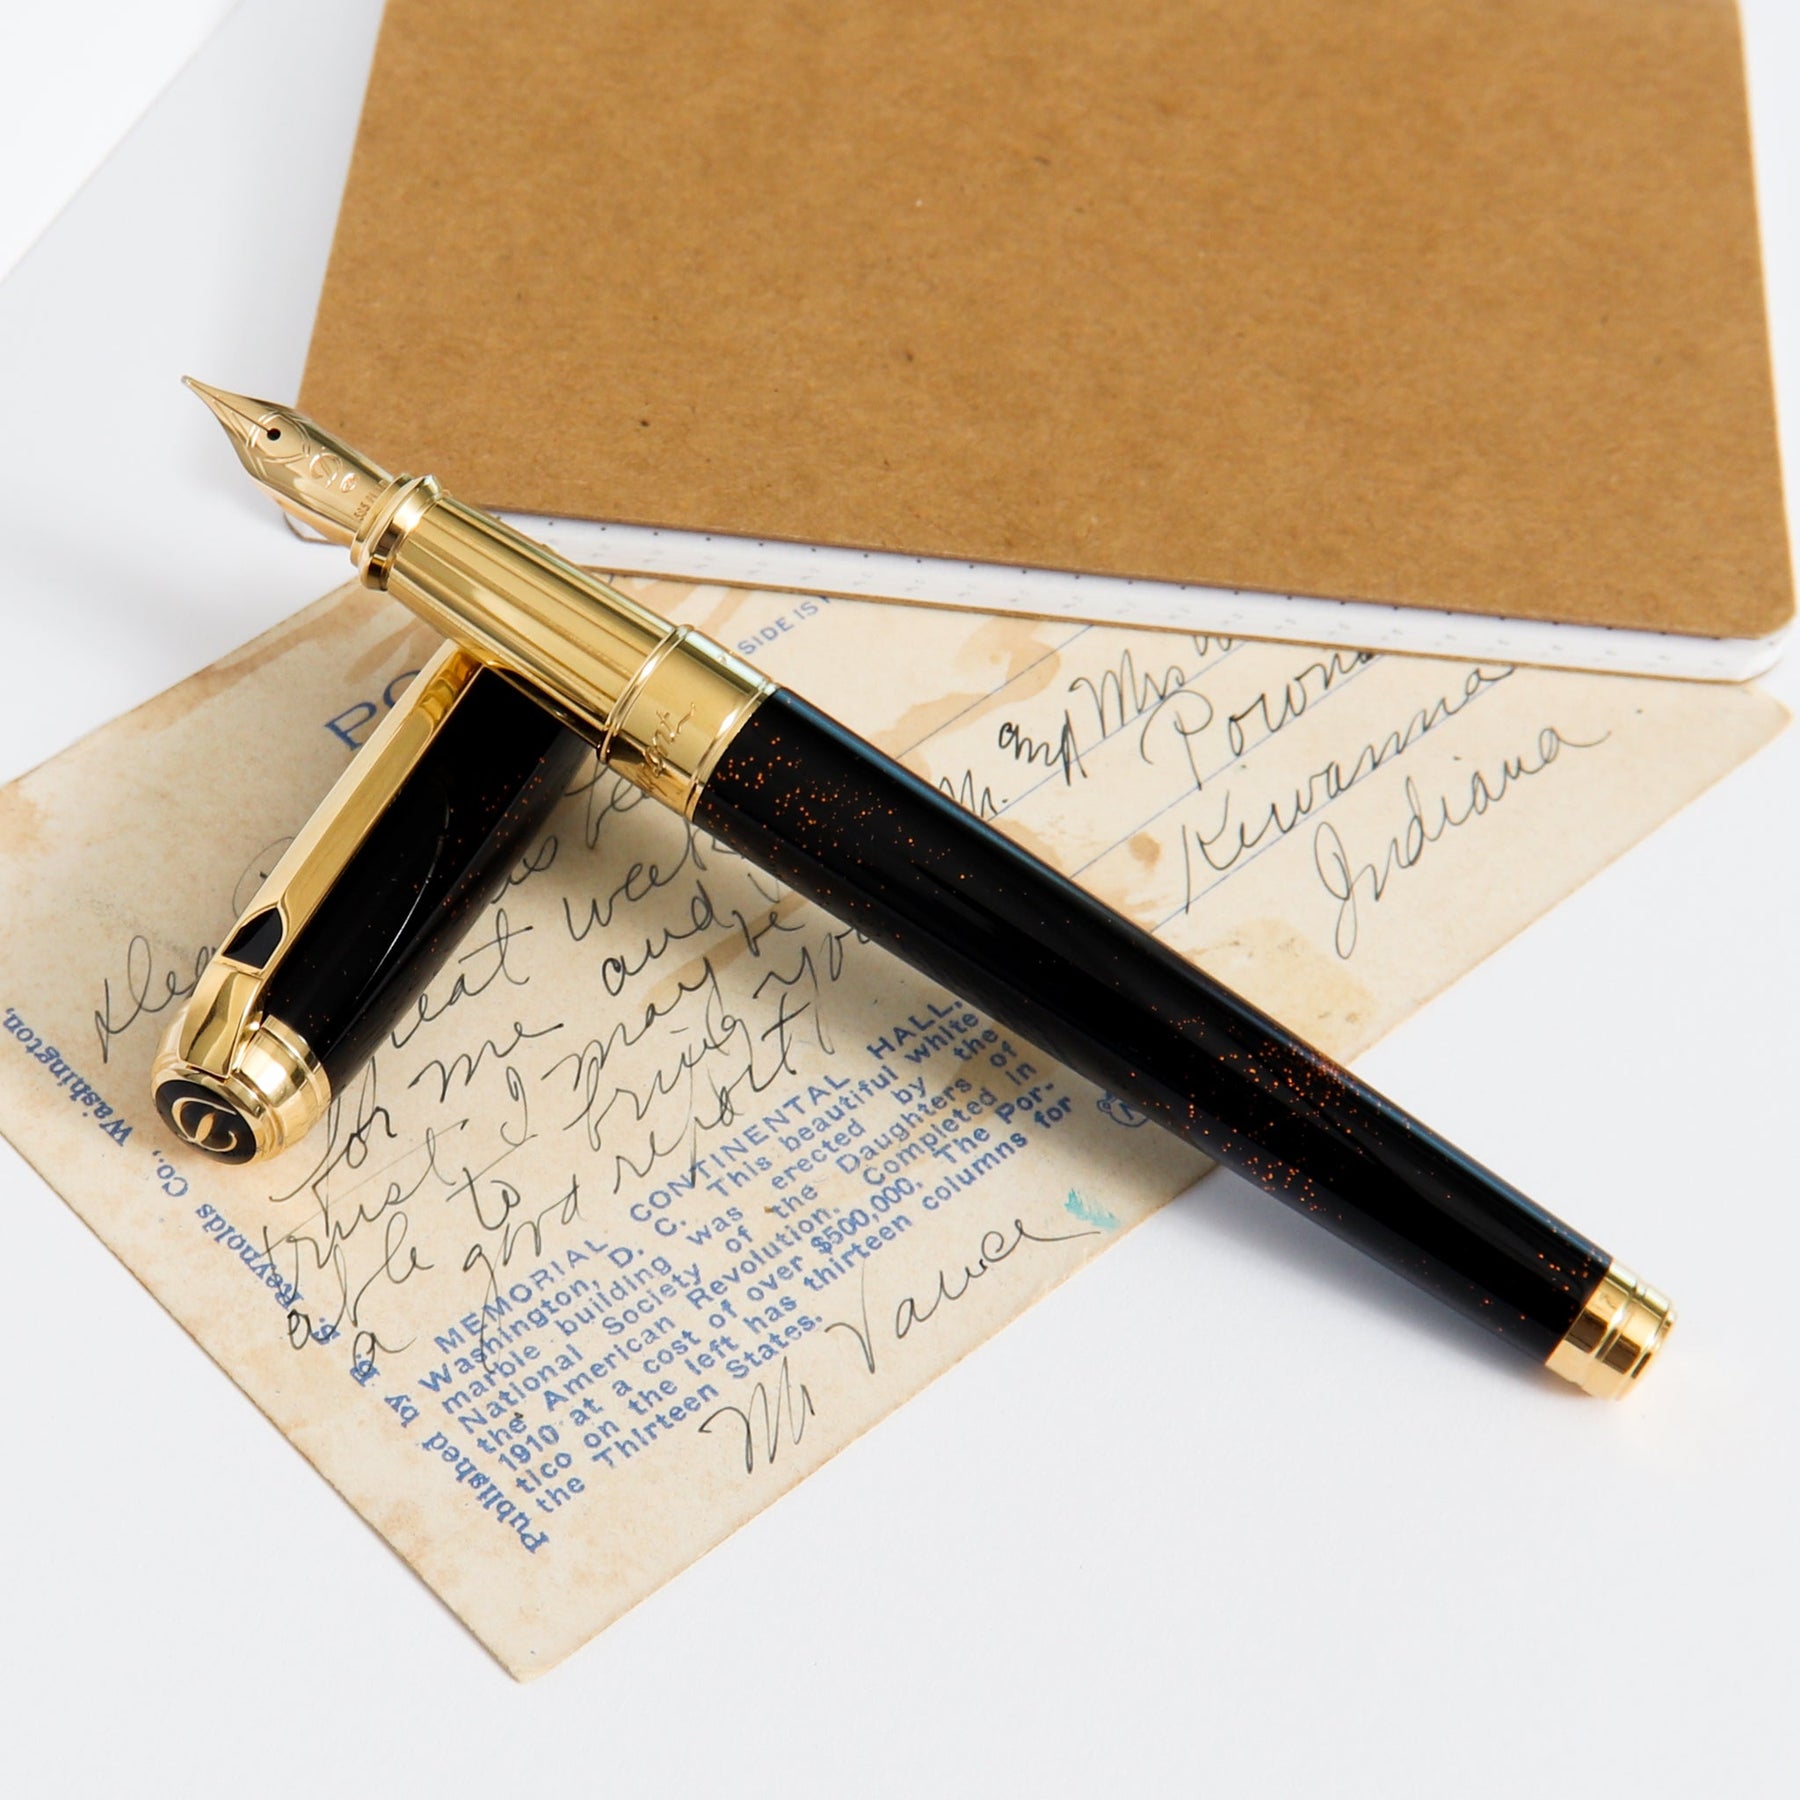 SIDE IS
PO
and Mrs
Kewanna
Indiana
great week
for me and
trust I may be
able to bring you
a good report
M Vance
MEMORIAL CONTINENTAL HALL,
Washington, D. C. This beautiful white
marble building was erected by the
National Society of the Daughters of
the American Revolution. Completed in
1910 at a cost of over $500,000. The Por-
tico on the left has thirteen columns for
the Thirteen States.
Published by B. S. Reynolds Co., Washington,
585